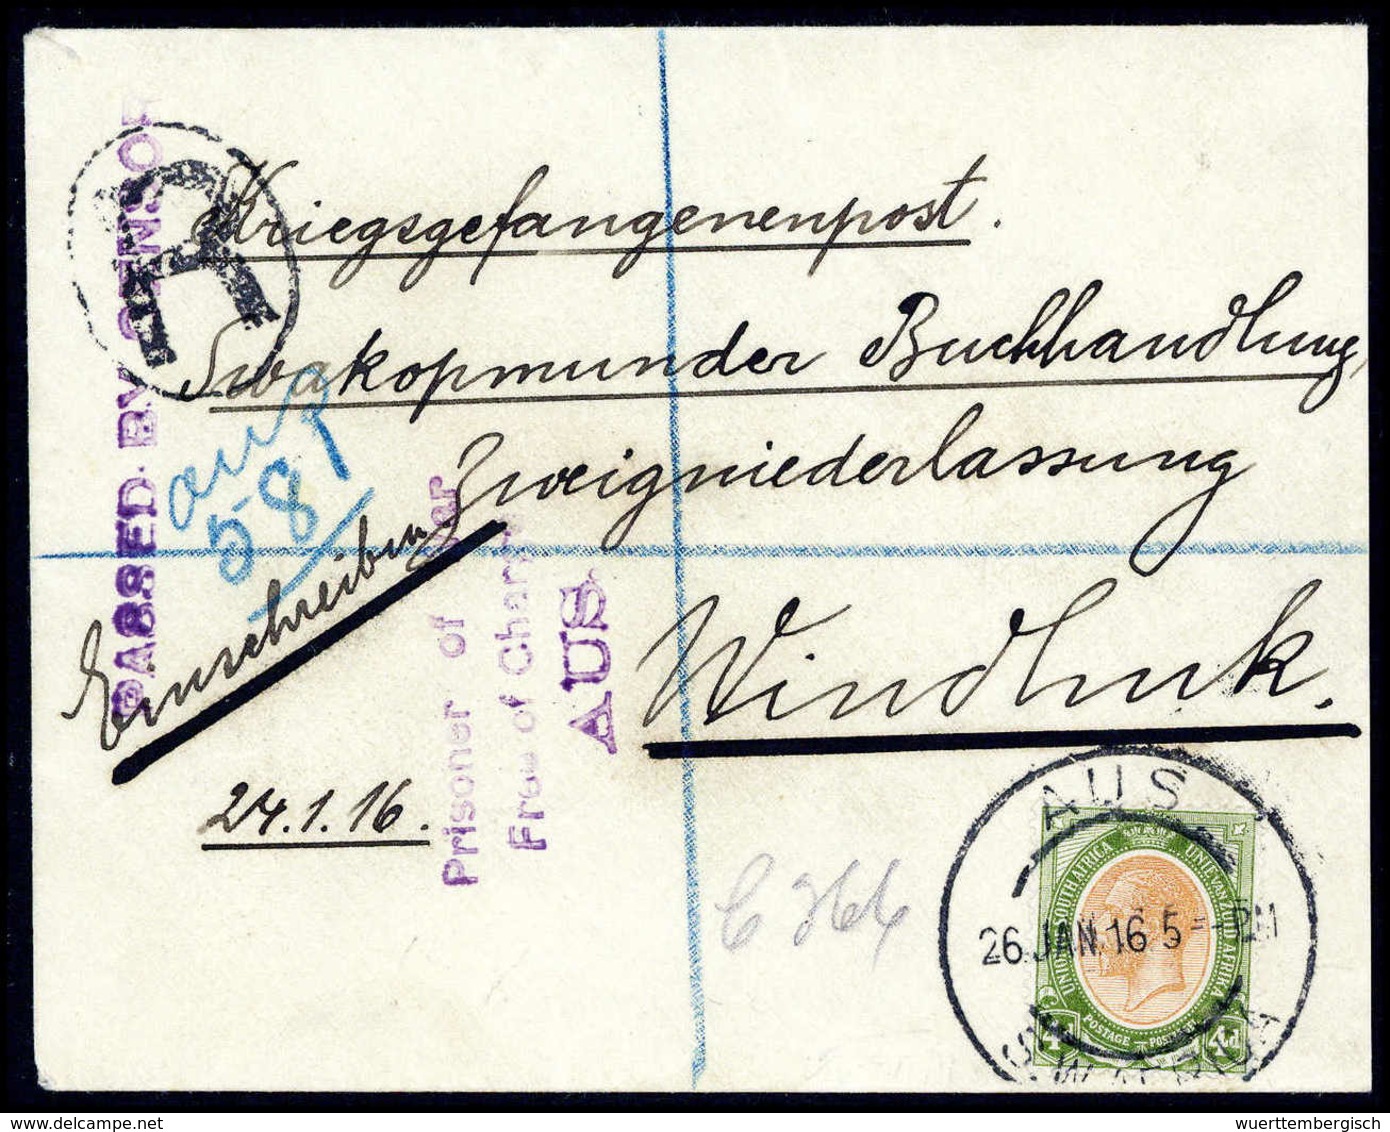 PASSED BY CENSOR
R
Kriegsgefangenenpost.
Swakopmunder Buchhandlung,
Zweigniederlassung
Windhuk.
aus
581
Einschreiben
24.1.16.
Prisoner of War
Free of Charge
AUS.
C 364
AUS
26 JAN.16 5 - PM
S.W.AFRICA
UNION OF SOUTH AFRICA
UNIE VAN ZUID AFRIKA
POSTAGE — POSTZEGEL
4d 4d
delcampe.net
wuerttembergisch